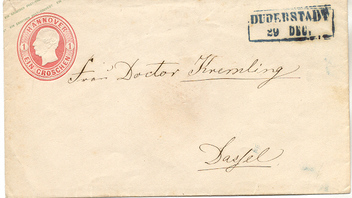 HANNOVER
1 1
EIN GROSCHEN
DUDERSTADT
29 DEC.
Frau Doctor Kremling
Dassel